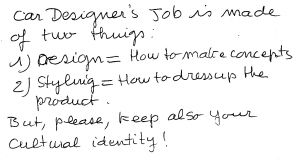 Car Designer's Job is made
of two things:
1) Design = How to make concepts
2) Styling = How to dress up the
product.
But, please, keep also your
Cultural identity!